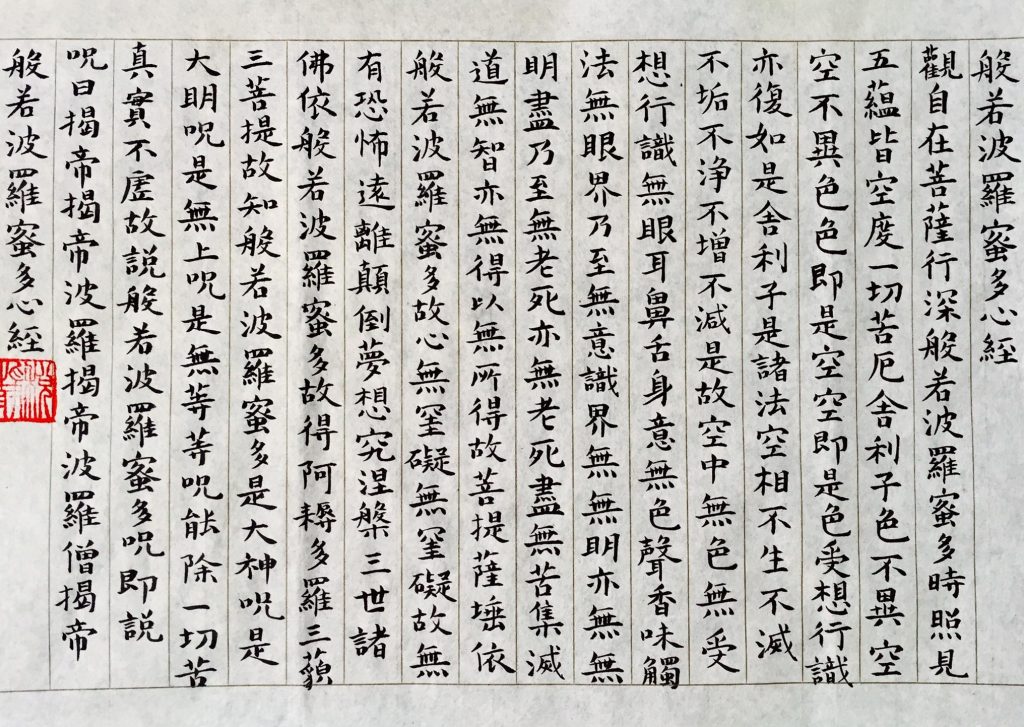 般若波羅蜜多心經
觀自在菩薩行深般若波羅蜜多時照見
五蘊皆空度一切苦厄舍利子色不異空
空不異色色即是空空即是色受想行識
亦復如是舍利子是諸法空相不生不滅
不垢不浄不增不減是故空中無色無受
想行識無眼耳鼻舌身意無色聲香味觸
法無眼界乃至無意識界無無明亦無無
明盡乃至無老死亦無老死盡無苦集滅
道無智亦無得以無所得故菩提薩埵依
般若波羅蜜多故心無罣礙無罣礙故無
有恐怖遠離顛倒夢想究涅槃三世諸
佛依般若波羅蜜多故得阿耨多羅三藐
三菩提故知般若波羅蜜多是大神呪是
大明呪是無上呪是無等等呪能除一切苦
真實不虛故說般若波羅蜜多呪即說
呪曰揭帝揭帝波羅揭帝波羅僧揭帝
般若波羅蜜多心經